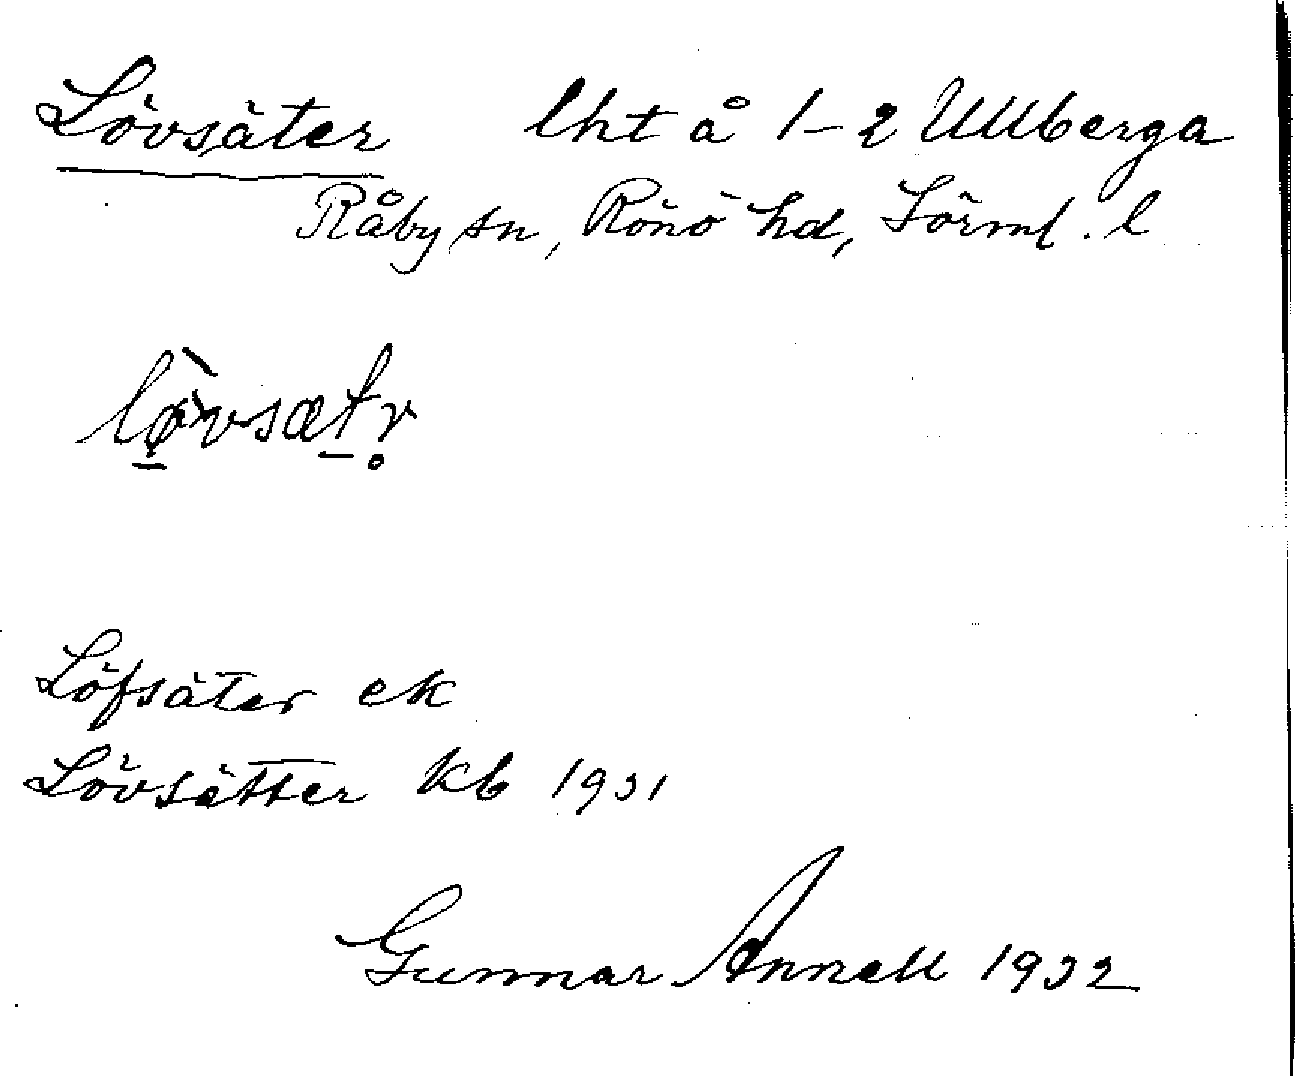 Lövsäter lht å 1-2 Ullberga
Råby sn, Rönö hd, Sörml. l
lø̠̀vsæt̠r̥
Löfsäter ek
Lövsätter kb 1931
Gunnar Annell 1932